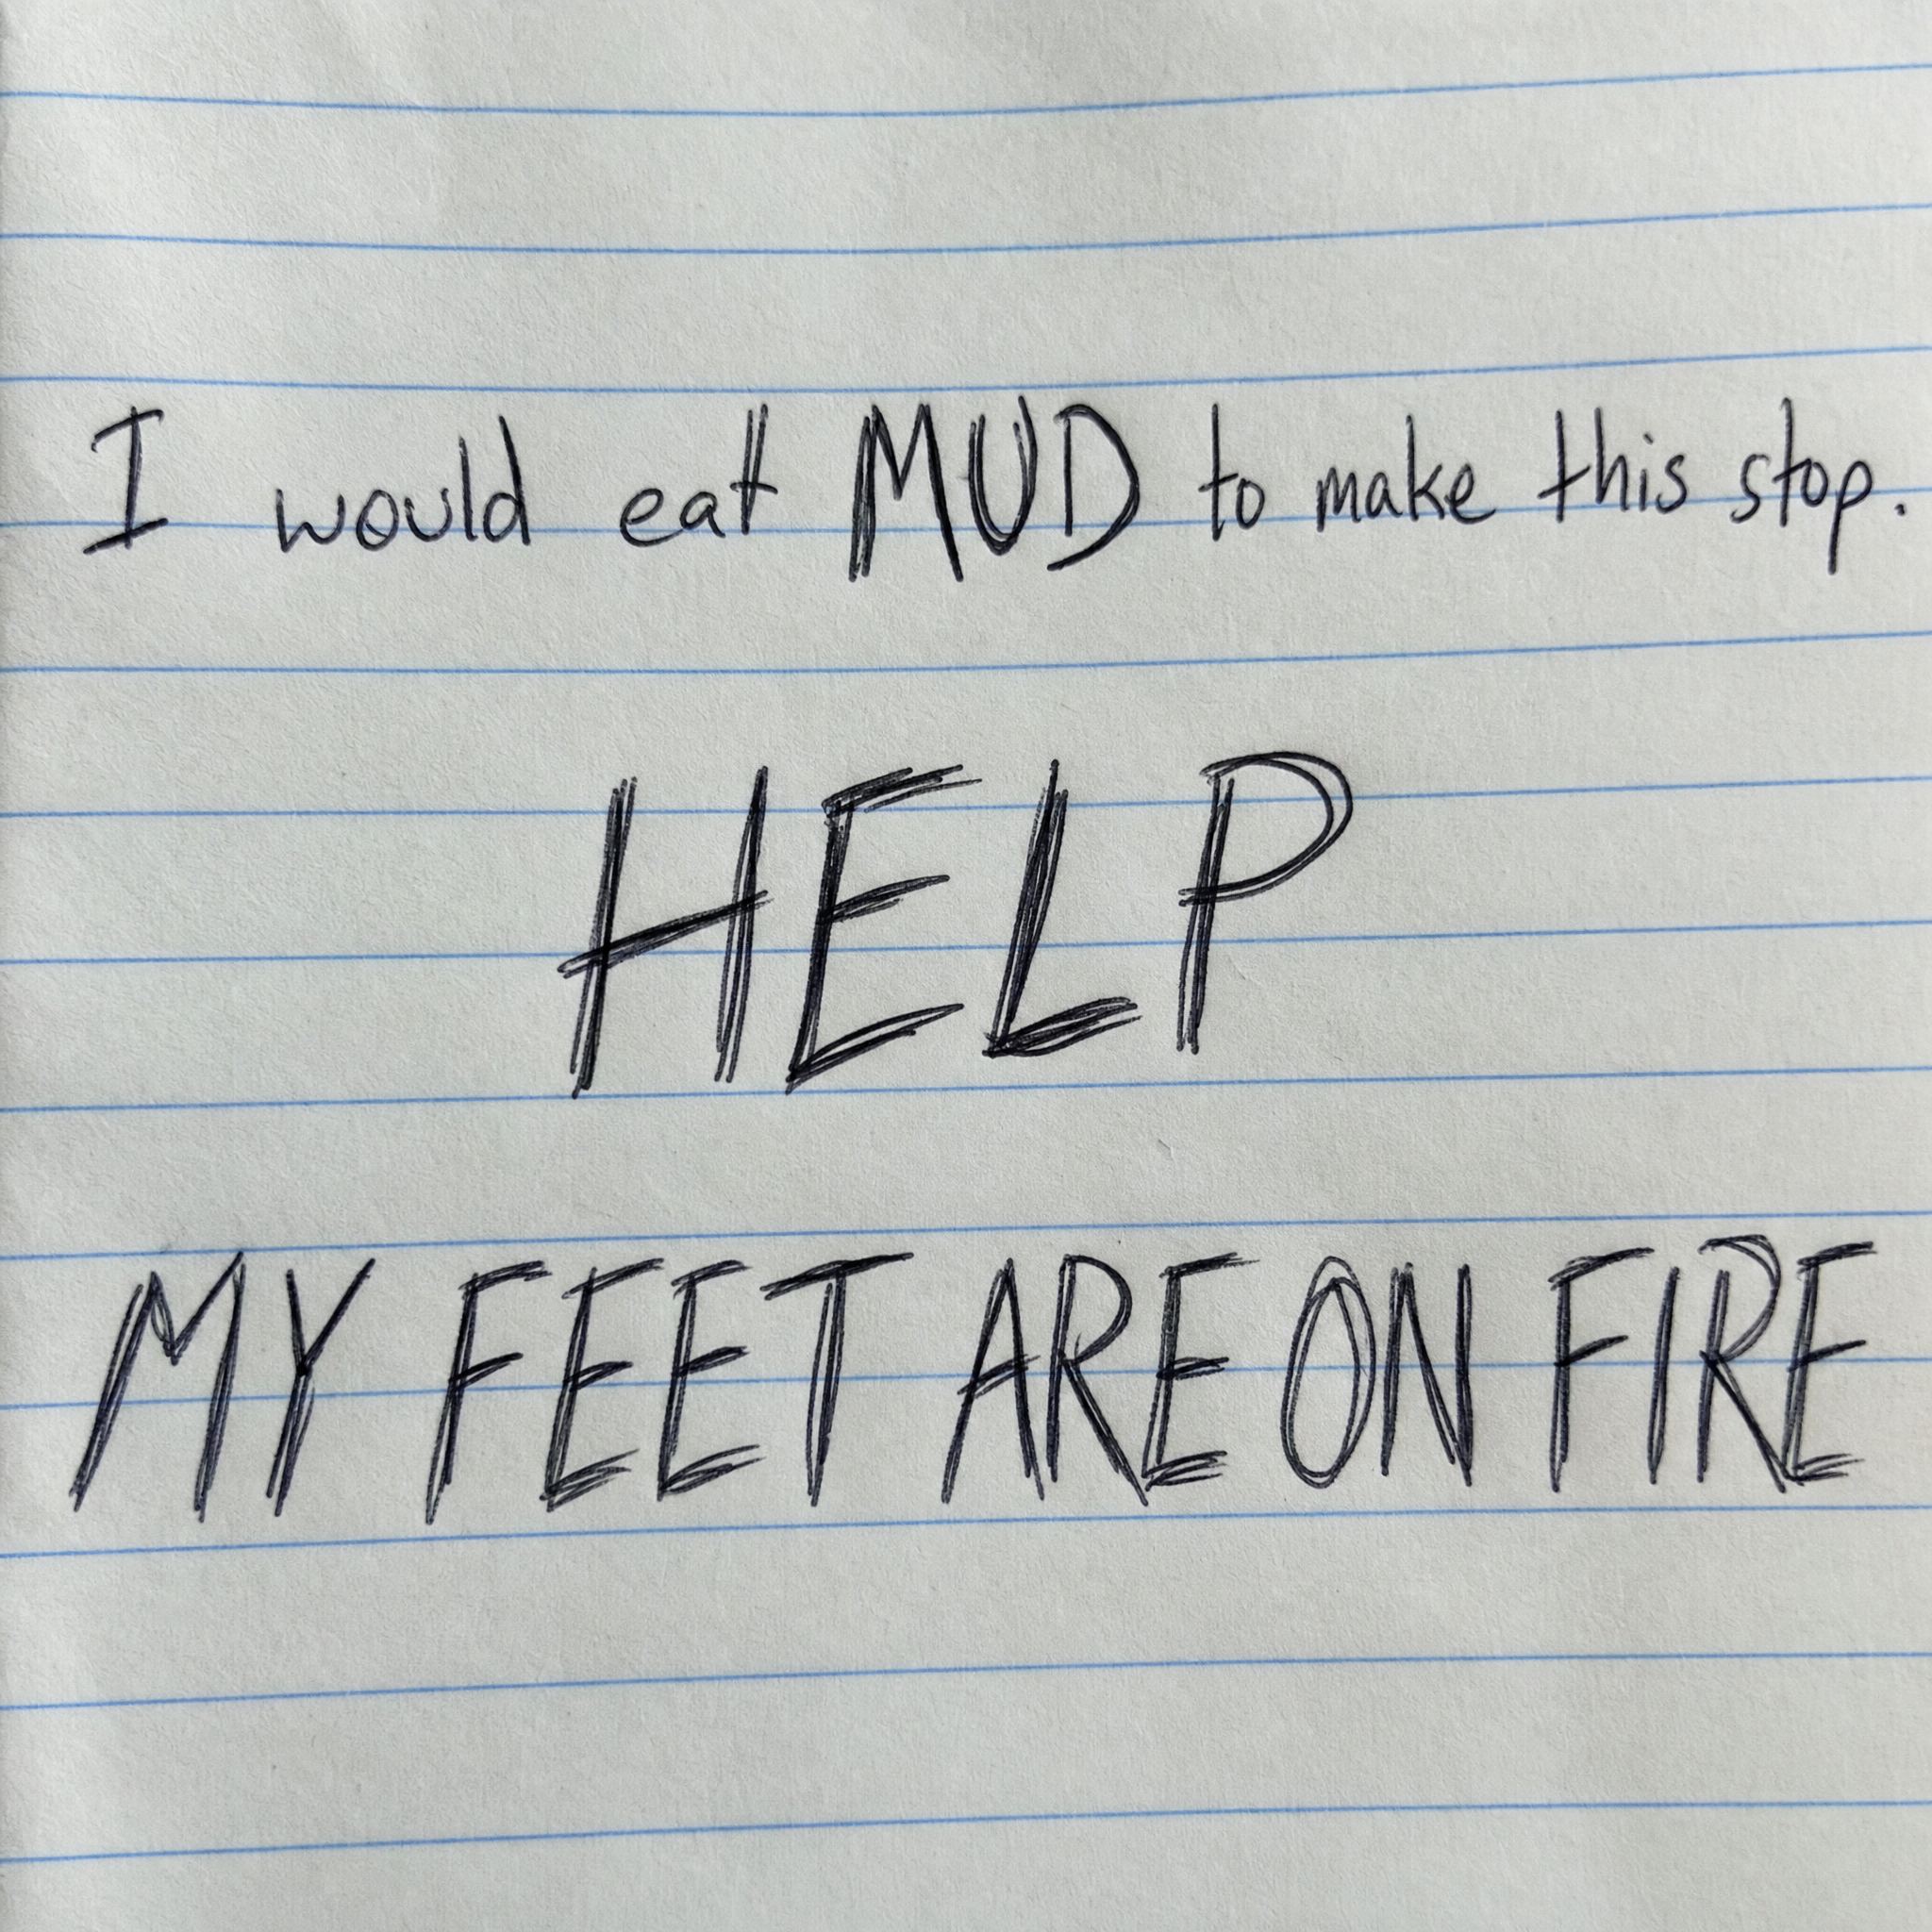 I would eat MUD to make this stop.
HELP
MY FEET ARE ON FIRE